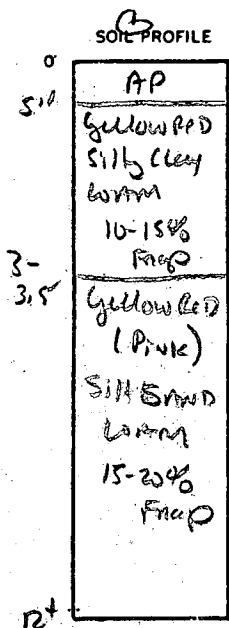 SOIL PROFILE
0
AP
5"
Yellow Red
Silty Clay
Loam
10-15%
Frag
3-
3.5
Yellow Red
(Pink)
Silt SAND
Loam
15-20%
Frag
12+